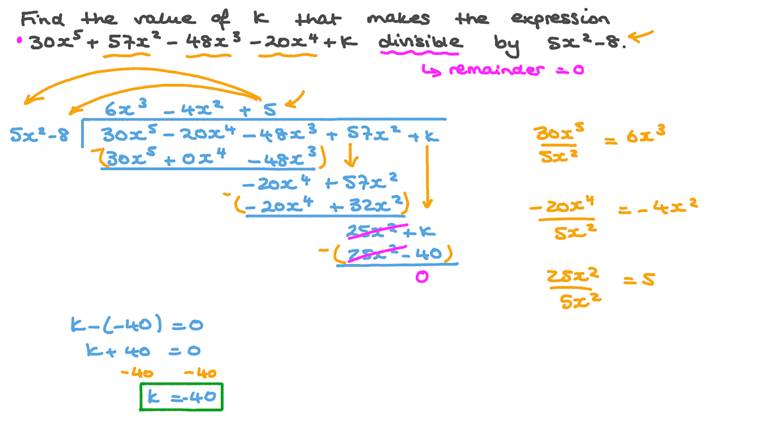 Find the value of k that makes the expression
• 30x⁵ + 57x² - 48x³ - 20x⁴ + k divisible by 5x² - 8.
↳ remainder = 0
6x³ - 4x² + 5
5x² - 8 30x⁵ - 20x⁴ - 48x³ + 57x² + k
-(30x⁵ + 0x⁴ - 48x³)
-20x⁴ + 57x²
-(-20x⁴ + 32x²)
25x² + k
-(25x² - 40)
0
30x⁵/5x² = 6x³
-20x⁴/5x² = -4x²
25x²/5x² = 5
k - (-40) = 0
k + 40 = 0
-40 -40
k = -40